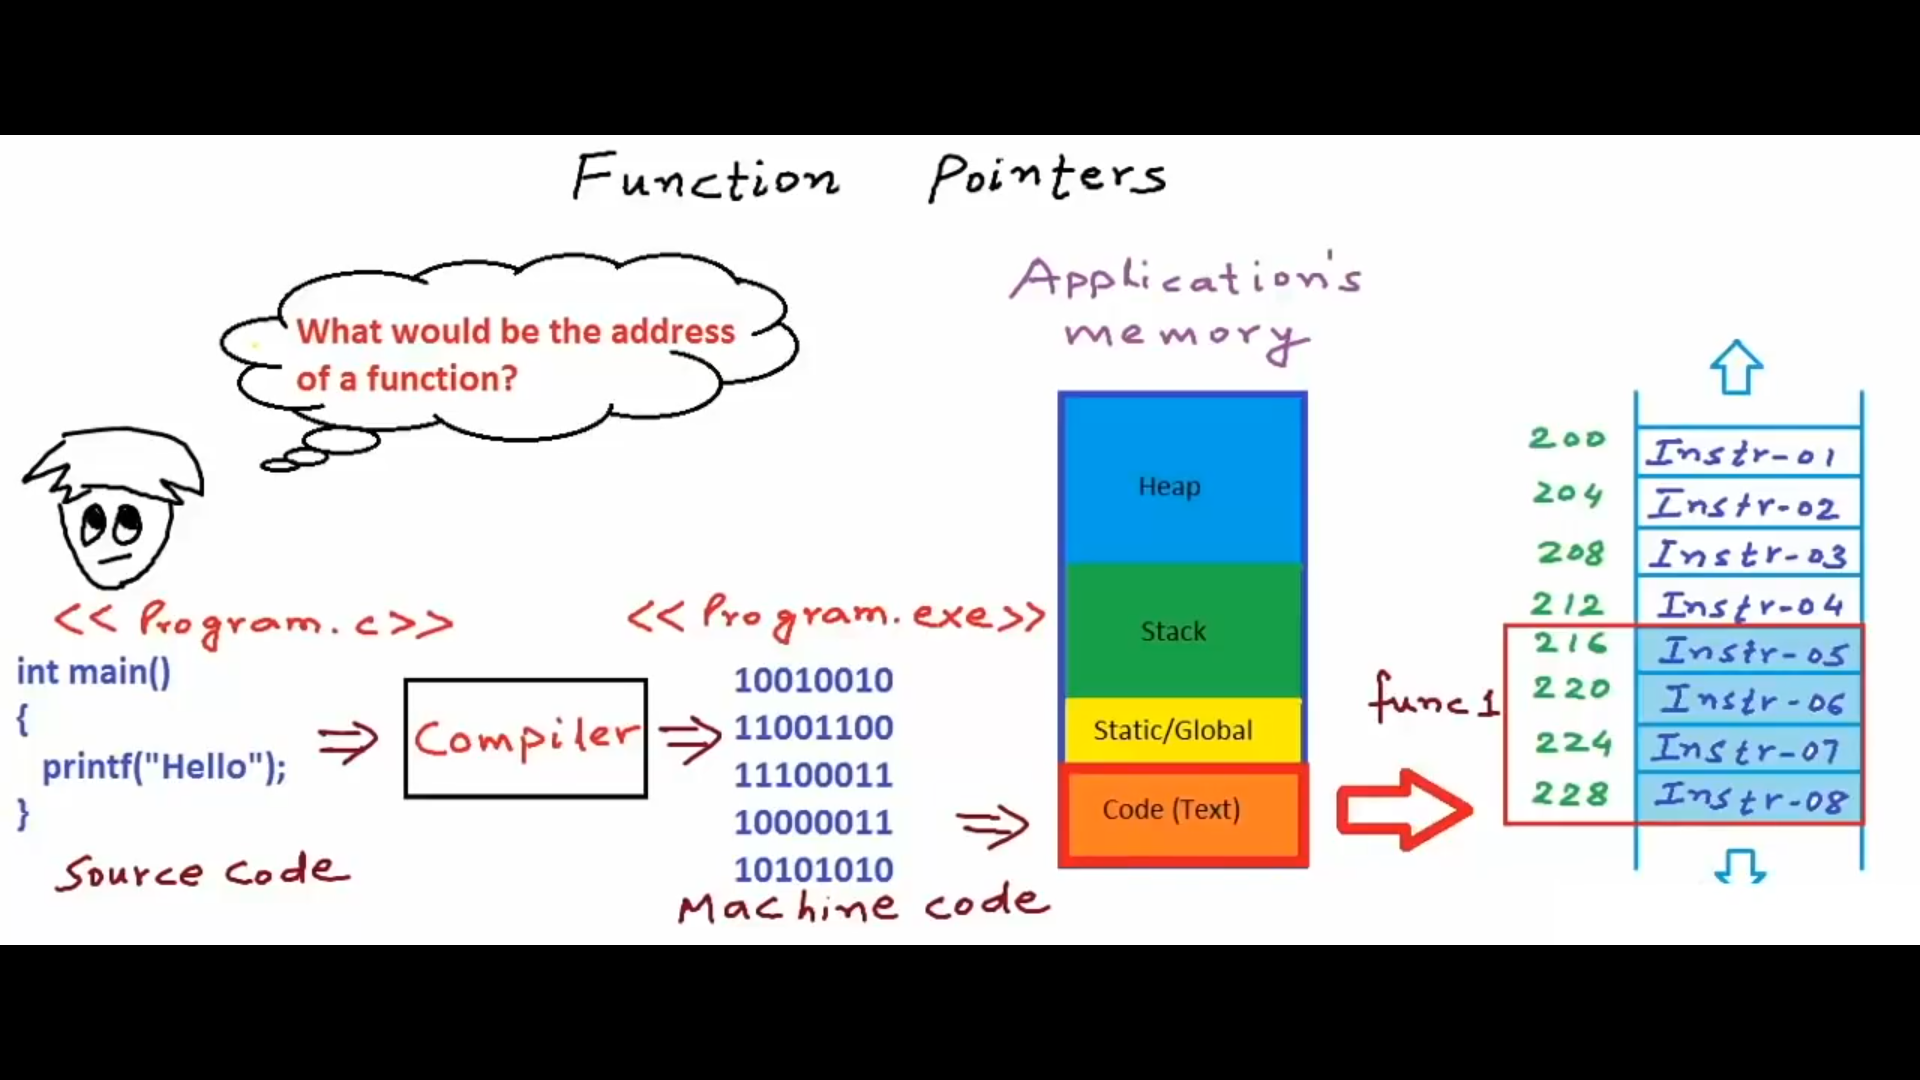 Function Pointers
What would be the address
of a function?
Application's
memory
<< Program.c>>
int main()
{
printf("Hello");
}
Source code
Compiler
<< Program.exe>>
10010010
11001100
11100011
10000011
10101010
Machine code
Heap
Stack
Static/Global
Code (Text)
func1
200 Instr-01
204 Instr-02
208 Instr-03
212 Instr-04
216 Instr-05
220 Instr-06
224 Instr-07
228 Instr-08